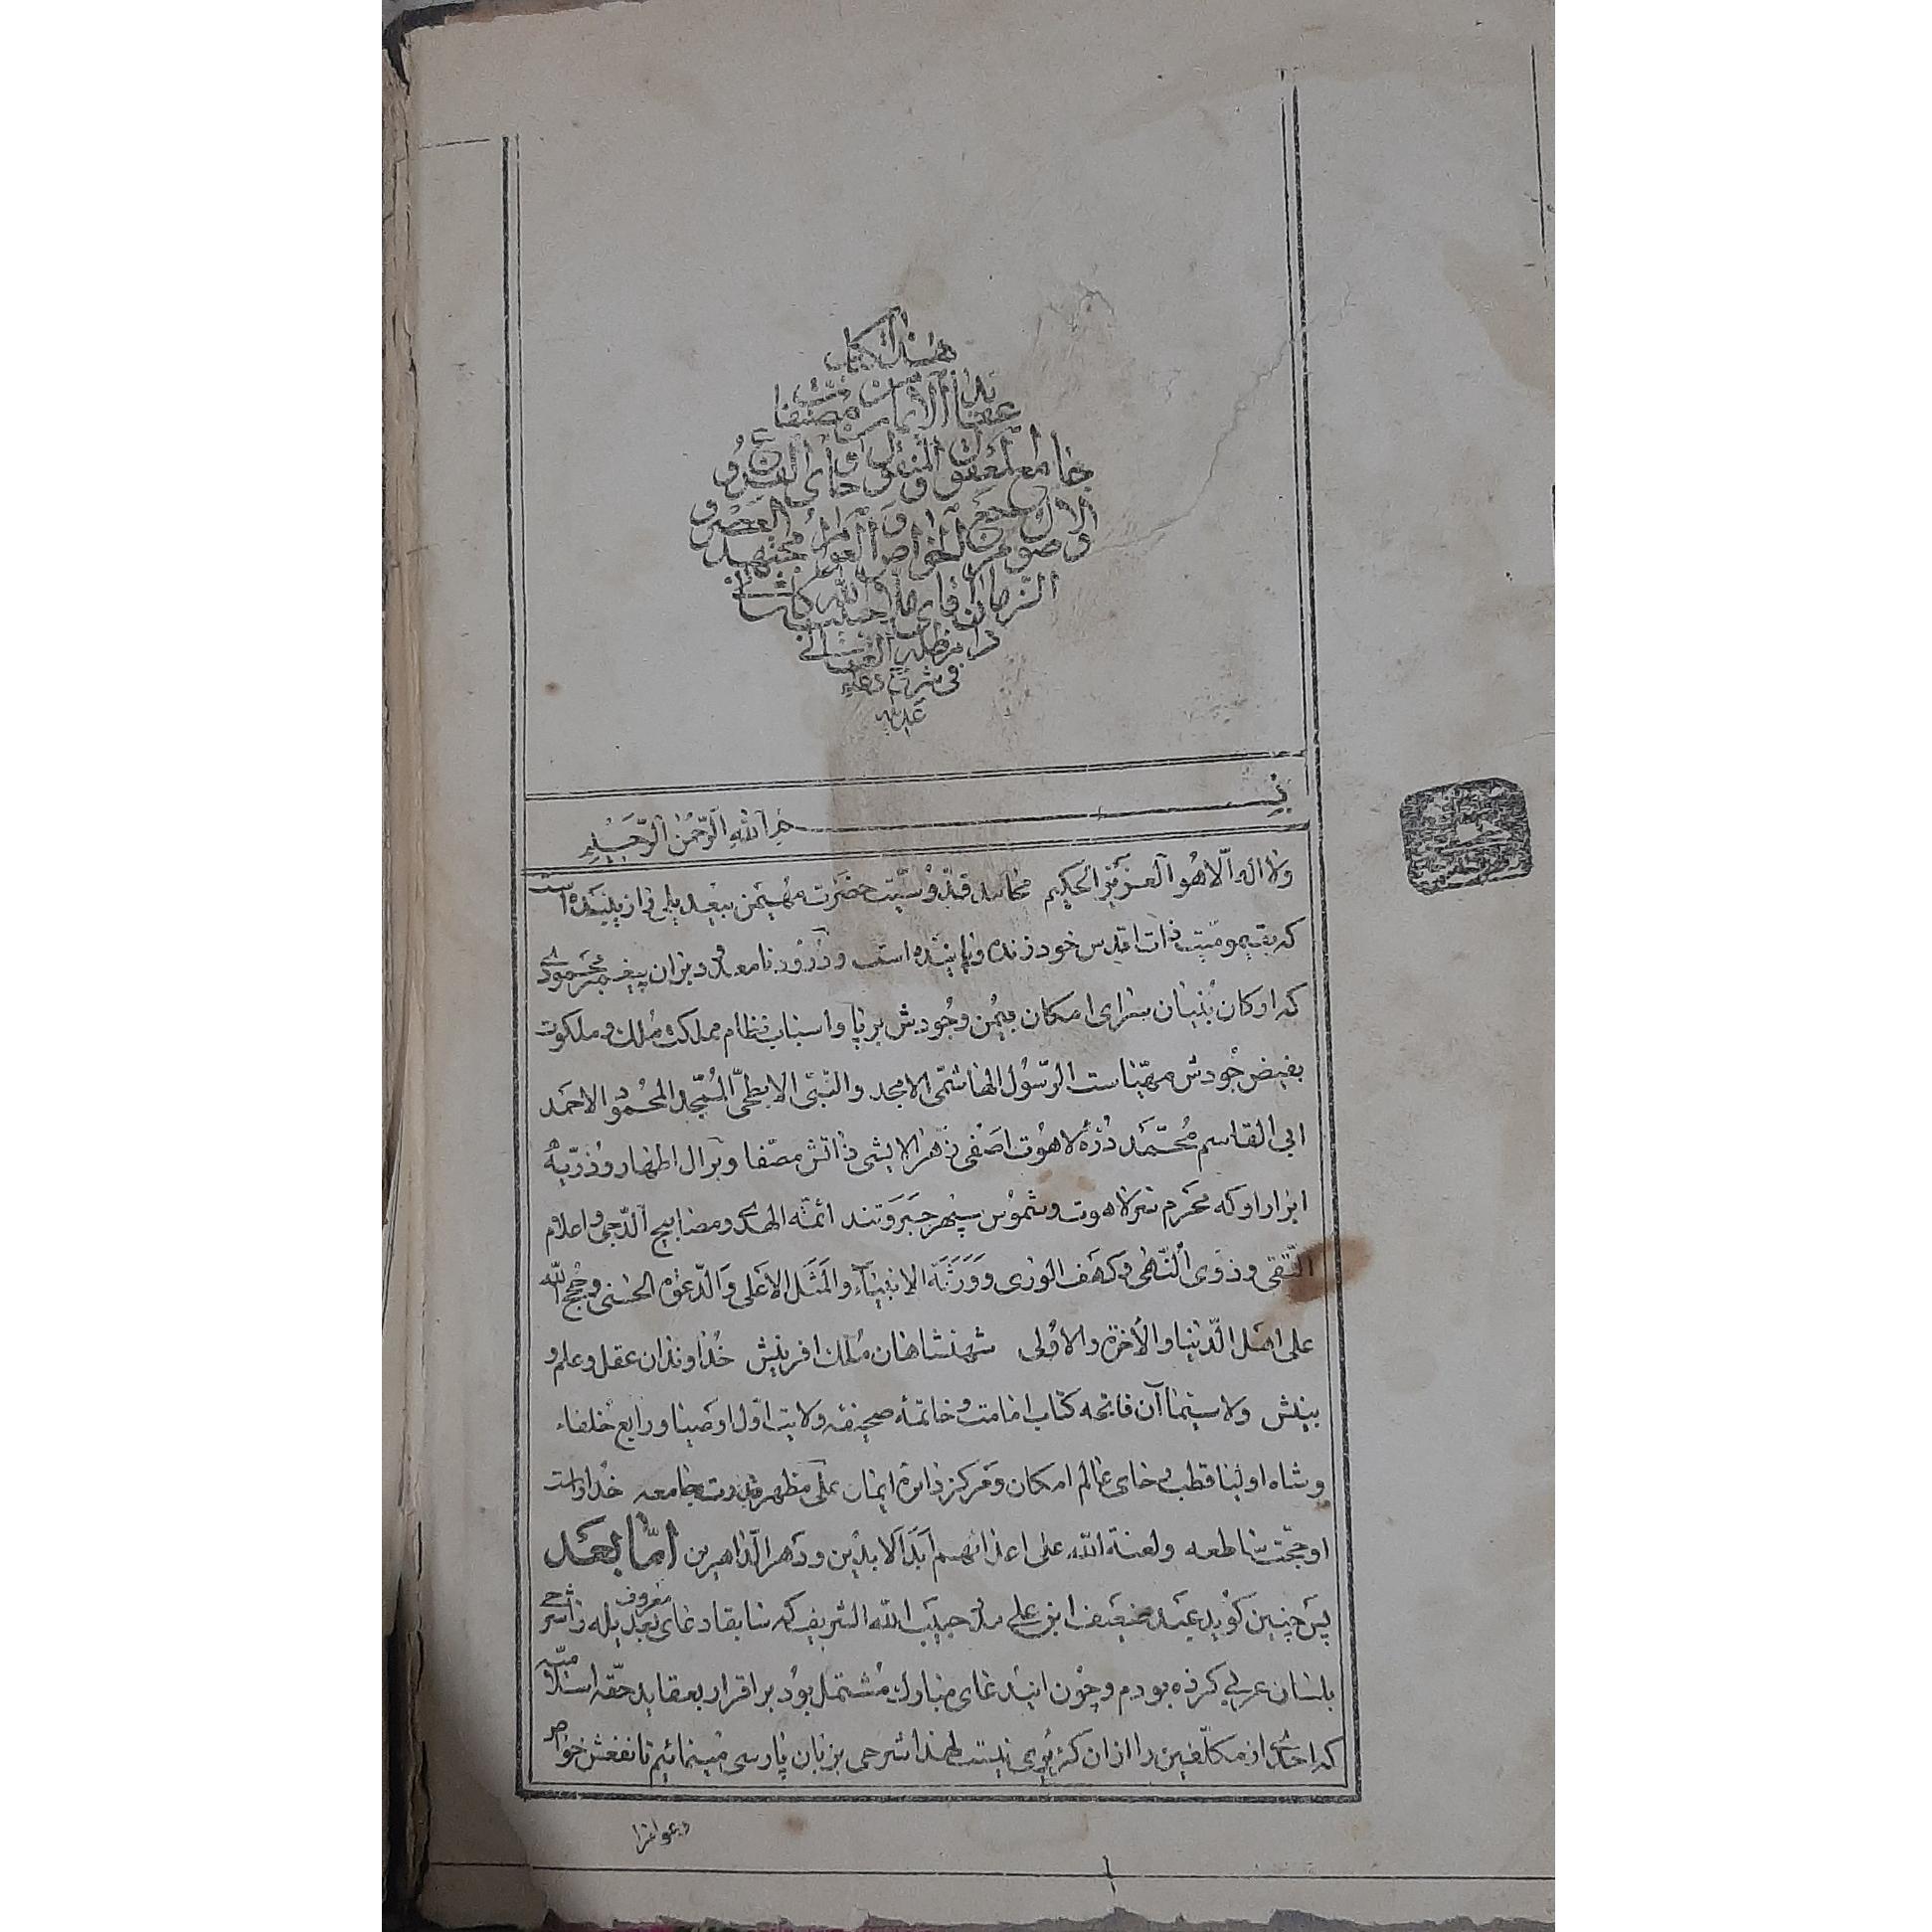 هذا الکتاب
عقاید الایمان من مصنفات
جامع المعقول و المنقول و حاوی الفروع
و الاصول مرجع الخواص و العوام مجتهد العصر و
الزمان اقای ملا حبیب الله کاشانی
دام ظله العالی
فی شرح دعاء
عدیله
بسم الله الرحمن الرحیم
ولا اله الا هو العزیز الحکیم محامد قدوسیت حضرت مهیمن
که بقیومیت ذات اقدس خود زنده و پاینده است و درود نامعدود بران پیغمبر محمودی
که ارکان بنیان سرای امکان بیمن وجودش برپا و اسباب نظام مملکت ملک و ملکوت
بفیض جودش مهیا است الرسول الهاشمی الامجد والنبی الابطحی المسجد المحمود الاحمد
ابی القاسم محمد درّهٔ لاهوت اصفی زهر الایشی ذاتش مصفا و برال اطهار و ذریهٔ
ابرار او که محرم سر لاهوت و شموس سپهر جبروتند ائمّة الهدی و مصابیح الدجی و اعلام
التقی و ذوی النهی و کهف الوری و ورثة الانبیاء والمثل الاعلی والدعوة الحسنی و حجج الله
علی اهل الدنیا والآخرة والاولی شهنشاهان ملک افرینش خداوندان عقل و علم و
بینش ولا سیما آن فاتحه کتاب امامت و خاتمهٔ صحیفه ولایت اول اوصیا و رابع خلفاء
و شاه اولیا قطب رحای عالم امکان و مرکز دائرهٔ ایمان علی مظهر قدرت جامعه خداست
او حجت ساطعه ولعنة الله علی اعدائهم ابد الابدین و دهر الداهرین امّا بعد
پس چنین گوید عبد ضعیف ابن علی مدد حبیب الله الشریف که سابقا دعای معروف بعدیله را شرحی
بلسان عربی کرده بودم و چون ایندعای مبارک مشتمل بود بر اقرار بعقاید حقه اسلامیه
که احدی از مکلفین را ازان گزیری نیست لهذا شرحی بزبان پارسی مینمائیم تا نفعش خواص
و عوام را